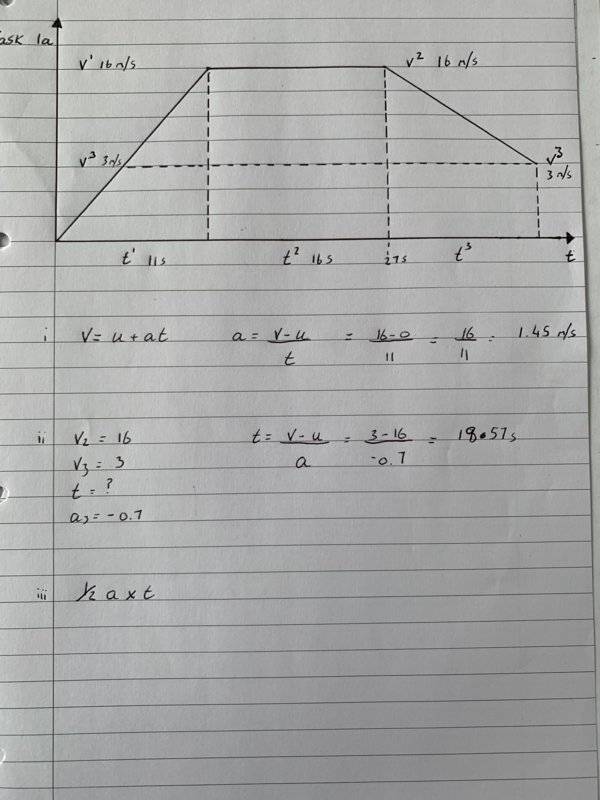 Task 1a
V¹ 16 m/s V² 16 m/s
V³ 3 m/s V³
3 m/s
t¹ 11s t² 16s 27s t³ t
i V = u + at a = V-u/t = 16-0/11 = 16/11 = 1.45 m/s
ii V₂ = 16 t = V-u/a = 3-16/-0.7 = 18.57s
V₃ = 3
t = ?
a₃ = -0.7
iii ½ a x t